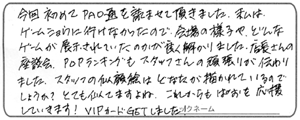 今回初めてPAO通を読ませて頂きました。私は、
ゲームショウに行けなかったので、会場の様子や、どんな
ゲームが展示されていたのかが良く解かりました。店長さんの
座談会、POPランキングもスタッフさんの頑張りが伝わり
ました。スタッフの似顔絵はどなたが描かれているので
しょうか？とても似てますよね。これからもぱおを応援
していきます！VIPカードGETしました!
クネーム